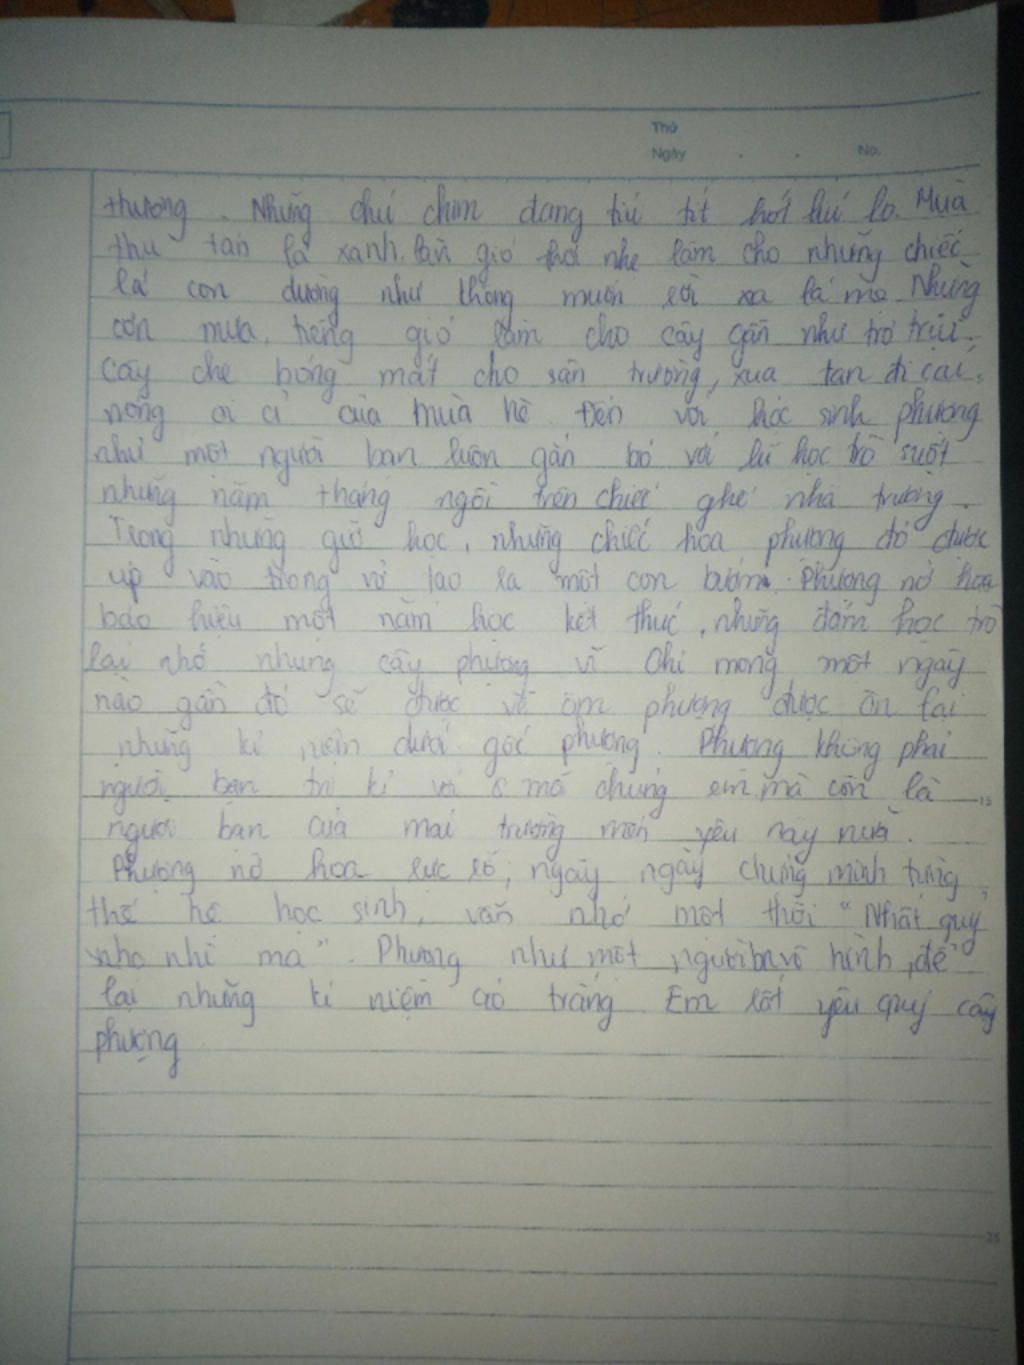 Thứ
Ngày . . No.
thương. Những chú chim đang tíu tít hót líu lo. Mùa
thu tán lá xanh. làn gió thổi nhẹ làm cho những chiếc
lá con dường như không muốn rời xa lá mẹ. Những
cơn mưa, tiếng gió làm cho cây gần như trơ trụi.
Cây che bóng mát cho sân trường, xua tan đi cái
nóng oi ả của mùa hè. Đến với học sinh phượng
như một người bạn luôn gắn bó với lũ học trò suốt
những năm tháng ngồi trên chiếc ghế nhà trường.
Trong những giờ học, những chiếc hoa phượng đó được
ụp vào trong vở tạo ra một con bướm. Phượng nở hoa
báo hiệu một năm học kết thúc, những đám học trò
lại nhớ nhung cây phượng vĩ Chỉ mong một ngày
nào gần đó sẽ được về ôm phượng được ôn lại
những kỉ niệm dưới gốc phượng. Phượng không phải
người bạn tri kỉ với mỗi chúng em mà còn là
15
người bạn của mái trường mến yêu này nữa.
Phượng nở hoa rực rỡ, ngày ngày chứng minh từng
thế hệ học sinh, vẫn nhớ một thời "Nhất quỷ
nhì ma". Phượng như một người vô hình, để
lại những kỉ niệm áo trắng Em rất yêu quý cây
phượng
25